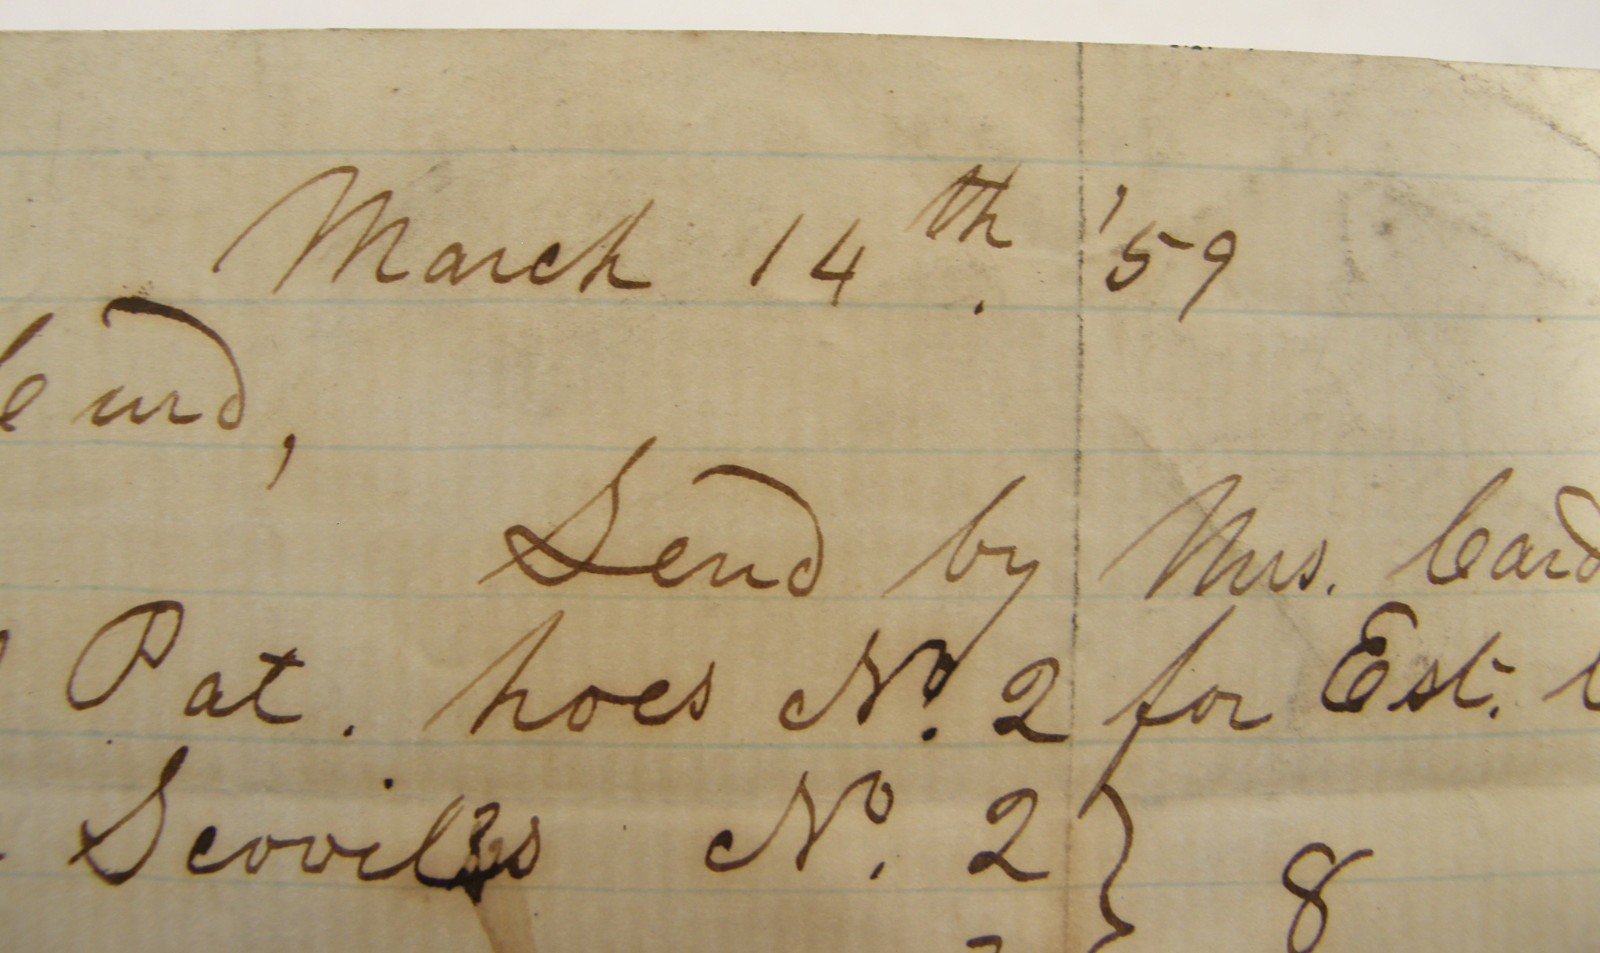 March 14th. '59
Curd,
Send by Mrs. Card
Pat. hoes No. 2 for Est.
Scovills No. 2 } 8